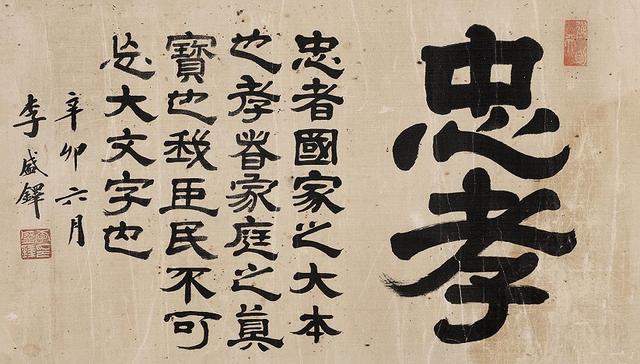 忠孝
忠者國家之大本
也孝者家庭之眞
寶也我臣民不可
忘大文字也
辛卯六月
李盛鐸